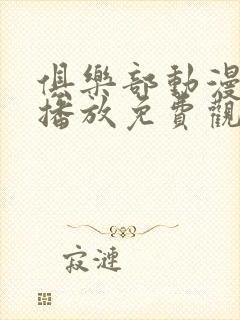 俱樂部動漫
播放免費觀
寂漣